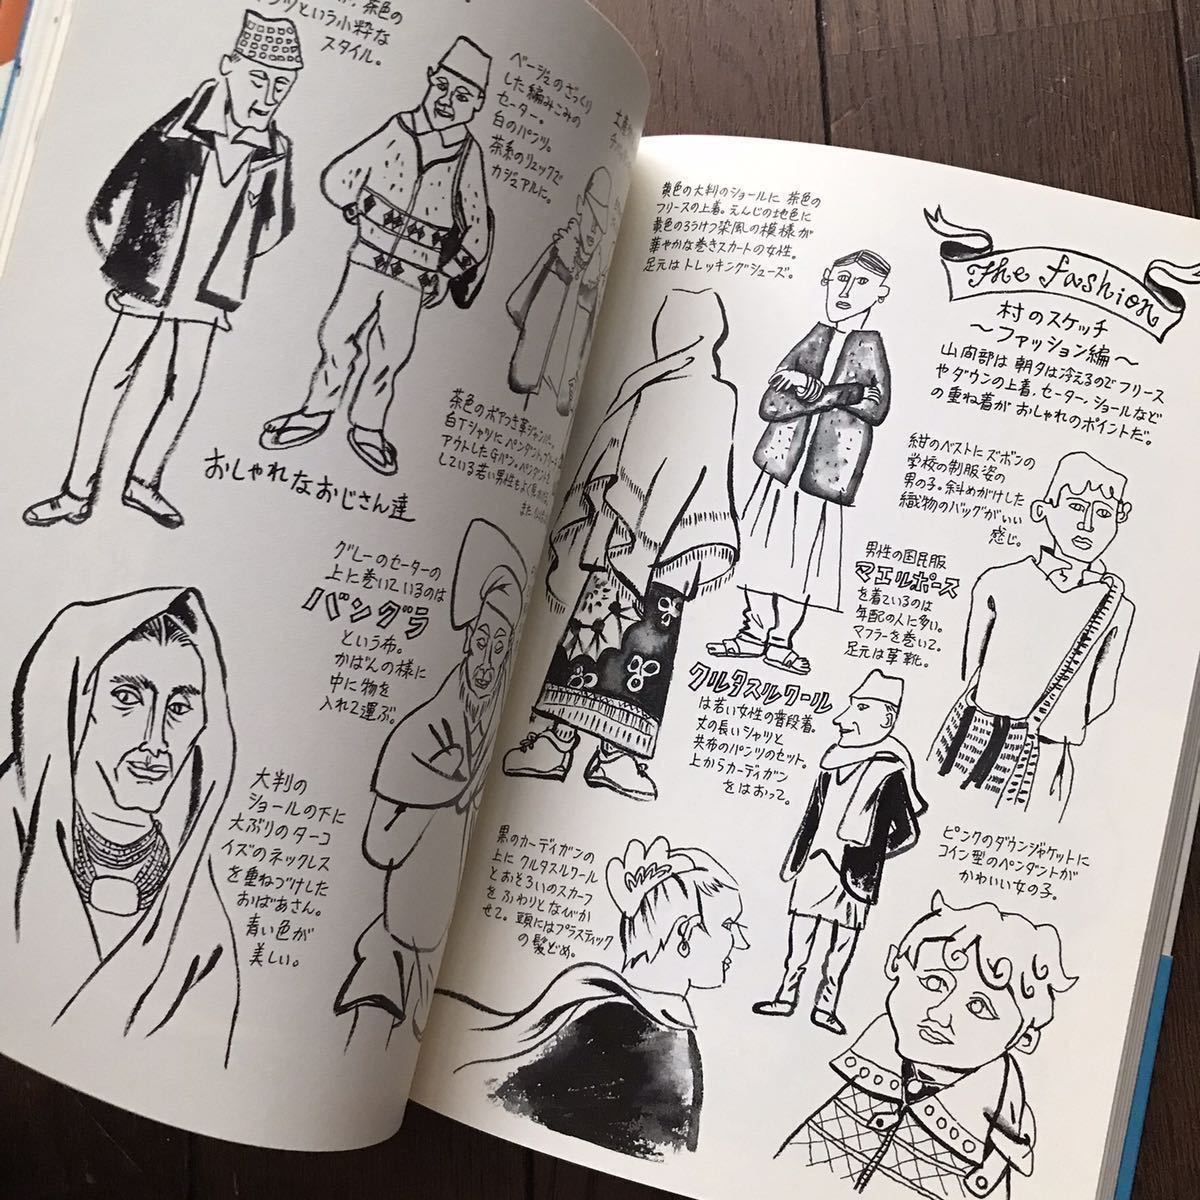 茶色の
という小粋な
スタイル。
ベージュのざっくり
した編みこみの
セーター。
白のパンツ。
茶系のリュックで
カジュアルに。
おしゃれなおじさん達
茶色のボアつき革ジャンパー。
白Tシャツにペンダント。
アウトしたGパン。ペンダントを
している若い男性もよく
グレーのセーターの
上に巻いているのは
バングラ
という布。
かばんの様に
中に物を
入れて運ぶ。
大判の
ショールの下に
大ぶりのターコ
イズのネックレス
を重ねづけした
おばあさん。
青い色が
美しい。
The fashion
村のスケッチ
〜ファッション編〜
山間部は朝夕は冷えるのでフリース
やダウンの上着、セーター、ショールなど
の重ね着がおしゃれのポイントだ。
黄色の大判のショールに茶色の
フリースの上着。えんじの地色に
黄色のろうけつ染風の模様が
華やかな巻きスカートの女性。
足元はトレッキングシューズ。
紺のベストにズボンの
学校の制服姿の
男の子。斜めがけした
織物のバッグがいい
感じ。
男性の国民服
マエルポース
を着ているのは
年配の人に多い。
マフラーを巻いて。
足元は革靴。
クルタスルワール
は若い女性の普段着。
丈の長いシャツと
共布のパンツのセット。
上からカーディガン
をはおって。
黒のカーディガンの
上にクルタスルワール
とおそろいのスカーフ
をふわりとなびか
せて。頭にはプラスティック
の髪どめ。
ピンクのダウンジャケットに
コイン型のペンダントが
かわいい女の子。